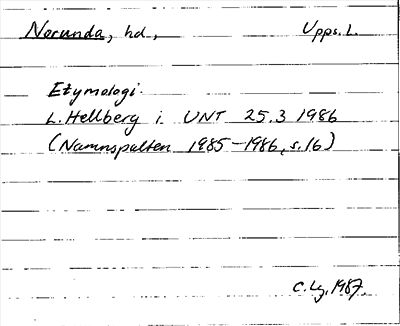 Norunda, hd, Upps. L.
Etymologi.
L. Hellberg i UNT 25.3 1986
(Namnspalten 1985-1986, s. 16)
C. Lg, 1987.